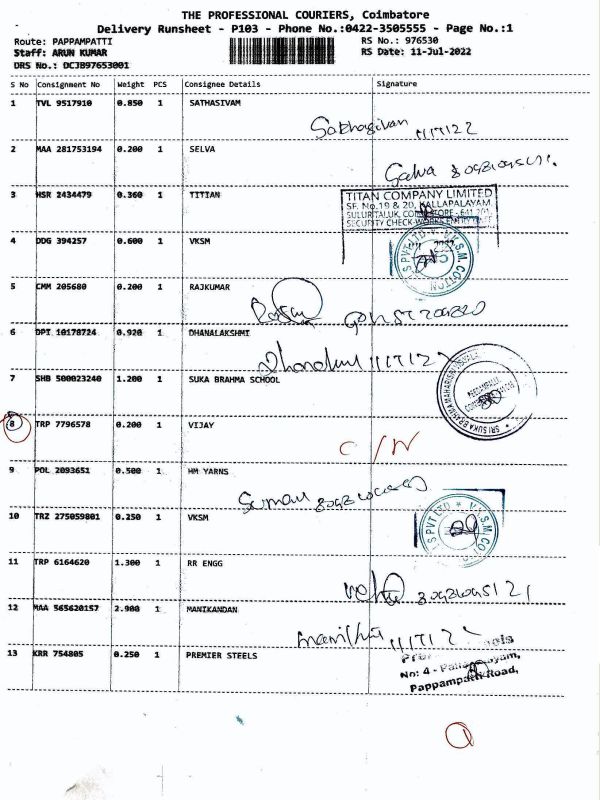 THE PROFESSIONAL COURIERS, Coimbatore
Delivery Runsheet - P103 - Phone No.:0422-3505555 - Page No.:1
Route: PAPPAMPATTI RS No.: 976530
Staff: ARUN KUMAR RS Date: 11-Jul-2022
DRS No.: DCJB97653001
S No Consignment No Weight PCS Consignee Details Signature
1 TVL 9517910 0.850 1 SATHASIVAM
Sathasivam 11/7/22
2 MAA 281753194 0.200 1 SELVA
Selva
3 HSR 2434479 0.360 1 TITIAN
TITAN COMPANY LIMITED
SF. No.19 & 20, KALLAPALAYAM,
SULUR TALUK, COIMBATORE - 641 201.
SECURITY CHECK
4 DDG 394257 0.600 1 VKSM
S.PVT LTD * V.K.S.M. COTTON
5 CMM 205680 0.200 1 RAJKUMAR
6 DPT 10178724 0.920 1 DHANALAKSHMI
11/7/22
7 SHB 500023240 1.200 1 SUKA BRAHMA SCHOOL
SRI SUKA BRAHMA MAHARISHI
8 TRP 7796578 0.200 1 VIJAY
9 POL 2093651 0.500 1 HM YARNS
10 TRZ 275059801 0.250 1 VKSM
S.PVT LTD * V.K.S.M. COTTON
11 TRP 6164620 1.300 1 RR ENGG
12 MAA 565620157 2.900 1 MANIKANDAN
11/7/22
13 KRR 754805 0.250 1 PREMIER STEELS
No: 4 -
Pappampatti Road,
1